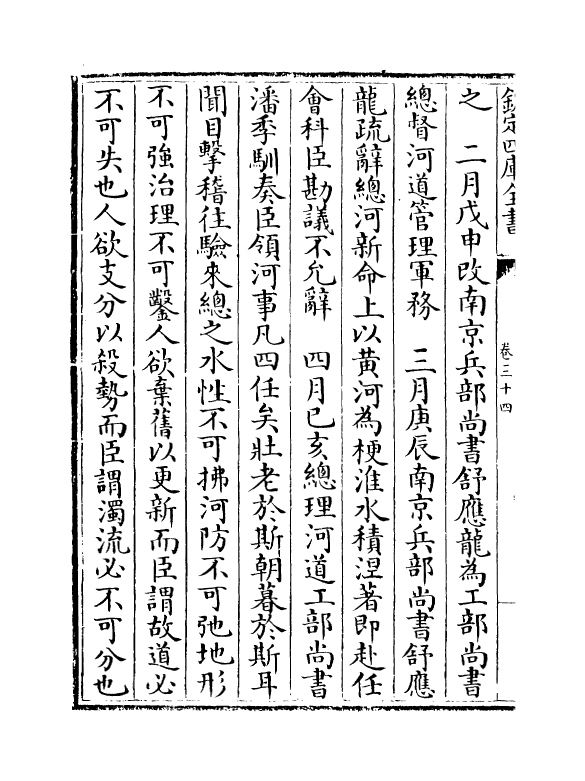 欽定四庫全書
卷三十四
之　二月戊申改南京兵部尚書舒應龍為工部尚書
總督河道管理軍務　三月庚辰南京兵部尚書舒應
龍疏辭總河新命上以黃河為梗淮水積浬著即赴任
會科臣勘議不允辭　四月己亥總理河道工部尚書
潘季馴奏臣領河事凡四任矣壯老於斯朝暮於斯耳
聞目擊稽往驗來總之水性不可拂河防不可弛地形
不可強治理不可鑿人欲棄舊以更新而臣謂故道必
不可失也人欲支分以殺勢而臣謂濁流必不可分也